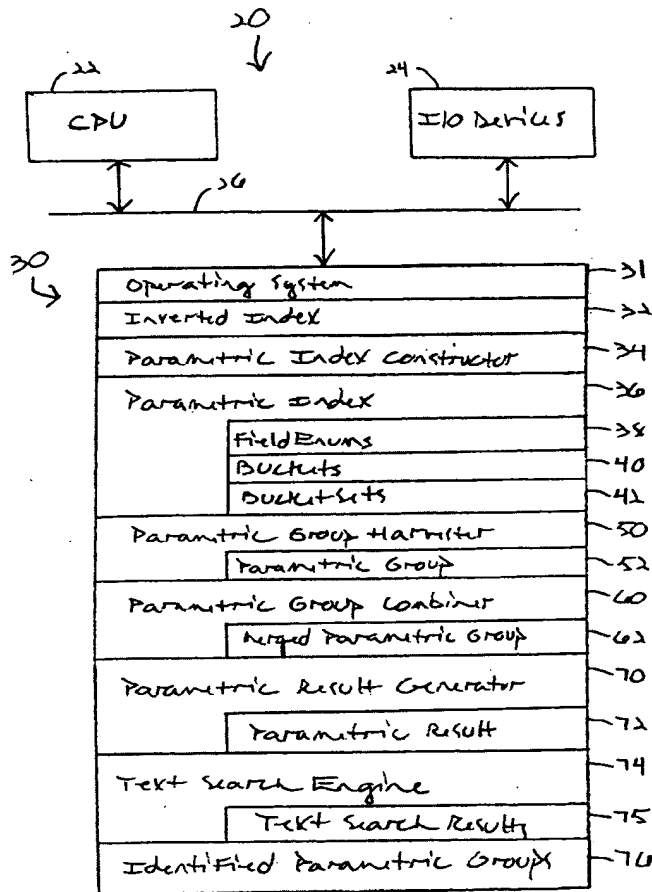 20
22
24
CPU
I/O Devices
26
30
Operating System
31
Inverted Index
32
Parametric Index Constructor
34
Parametric Index
36
FieldEnums
38
Buckets
40
BucketSets
42
Parametric Group Harvester
50
Parametric Group
52
Parametric Group Combiner
60
Merged Parametric Group
62
Parametric Result Generator
70
Parametric Result
72
Text Search Engine
74
Text Search Results
75
Identified Parametric Groups
76